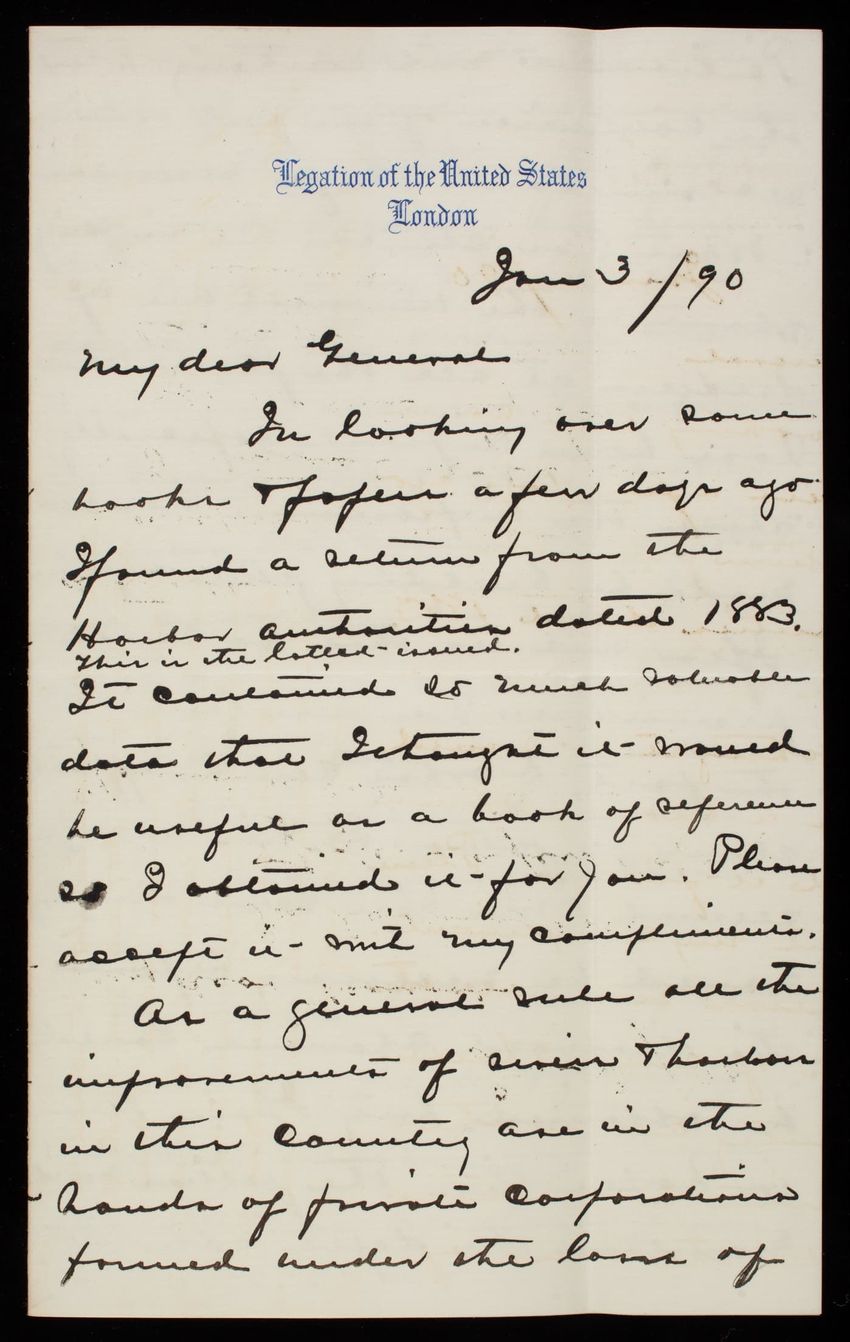 Legation of the United States
London
Jan 3/90
My dear General
In looking over some
books & papers a few days ago
I found a return from the
Harbor authorities dated 1883.
This is the latest issued.
It contained so much valuable
data that I thought it would
be useful as a book of reference
so I obtained it for you. Please
accept it with my compliments.
As a general rule all the
improvements of rivers & harbors
in this country are in the
hands of private corporations
formed under the laws of